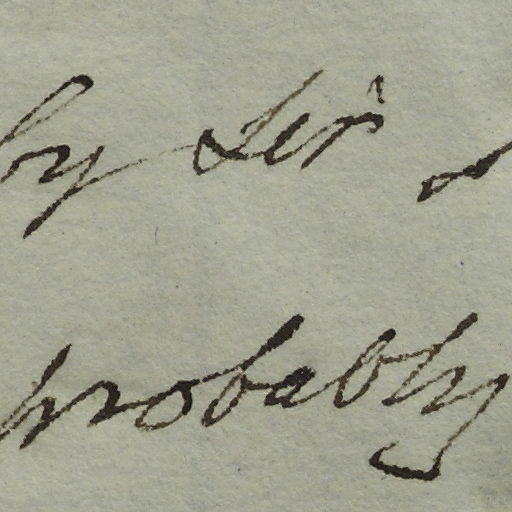 by Sir
probably